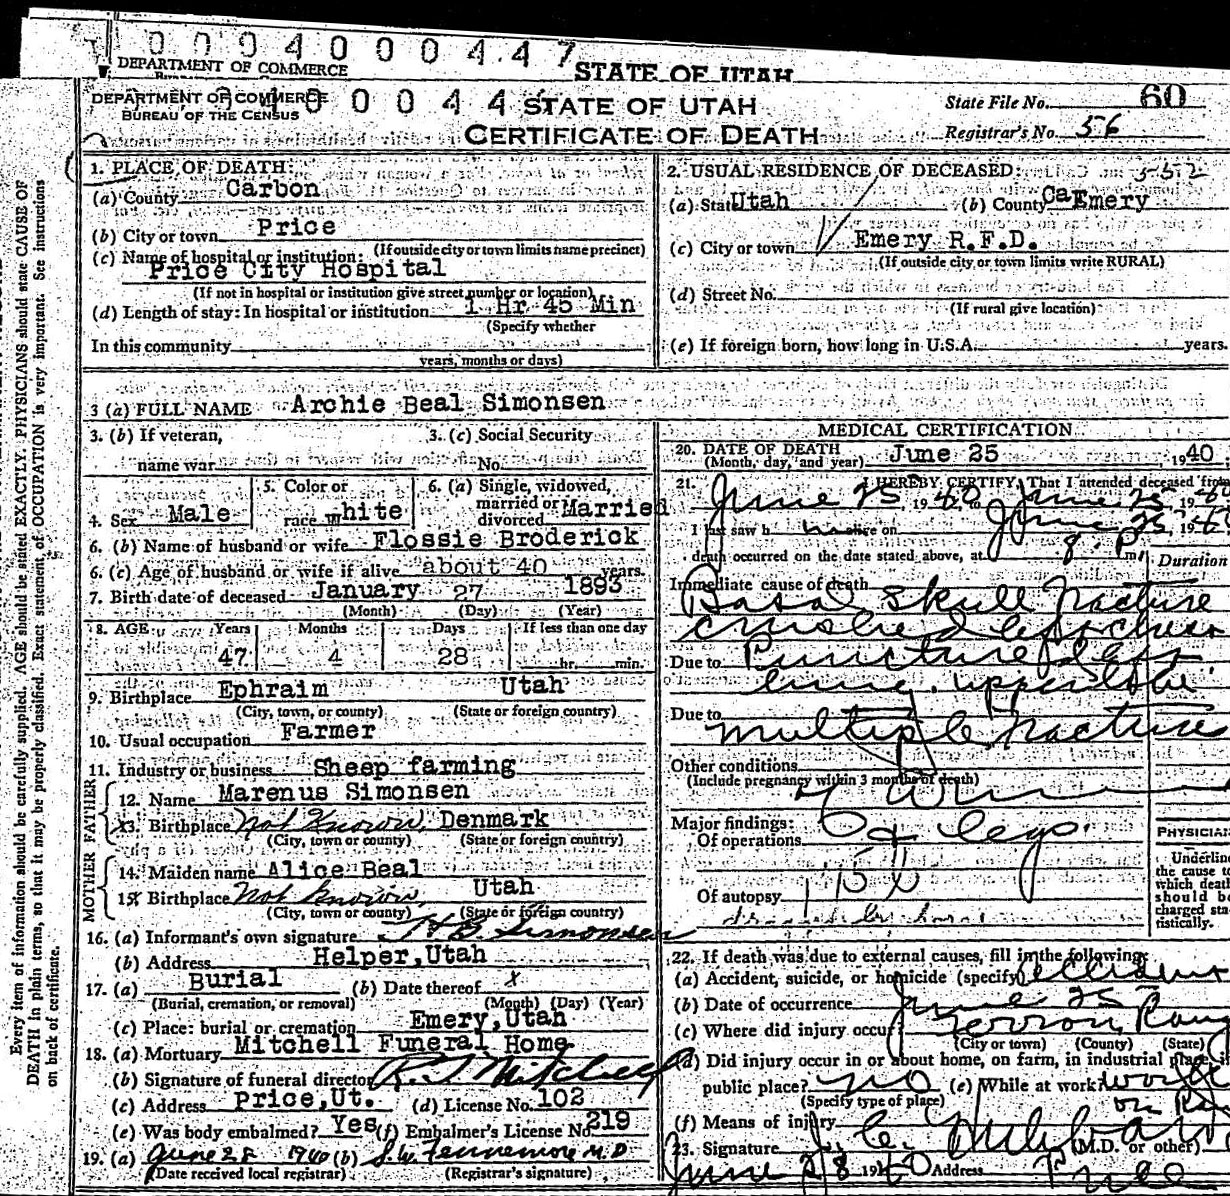 0004000447
DEPARTMENT OF COMMERCE
STATE OF UTAH
DEPARTMENT OF COMMERCE
BUREAU OF THE CENSUS
STATE OF UTAH
CERTIFICATE OF DEATH
State File No. 60
Registrar's No. 56
1. PLACE OF DEATH:
(a) County Carbon
(b) City or town Price
(If outside city or town limits name precinct)
(c) Name of hospital or institution:
Price City Hospital
(If not in hospital or institution give street number or location)
(d) Length of stay: In hospital or institution 1 Hr 45 Min
(Specify whether
In this community
years, months or days)
2. USUAL RESIDENCE OF DECEASED:
(a) State Utah (b) County Ca Emery
(c) City or town Emery R.F.D.
(If outside city or town limits write RURAL)
(d) Street No.
(If rural give location)
(e) If foreign born, how long in U.S.A. years.
3 (a) FULL NAME Archie Beal Simonsen
3. (b) If veteran,
name war
3. (c) Social Security
No.
4. Sex Male
5. Color or
race White
6. (a) Single, widowed,
married or
divorced Married
6. (b) Name of husband or wife Flossie Broderick
6. (c) Age of husband or wife if alive about 40 years.
7. Birth date of deceased January 27 1893
(Month) (Day) (Year)
8. AGE Years Months Days If less than one day
47 4 28 hr. min.
9. Birthplace Ephraim Utah
(City, town, or county) (State or foreign country)
10. Usual occupation Farmer
11. Industry or business Sheep farming
FATHER
12. Name Marenus Simonsen
13. Birthplace Not Known, Denmark
(City, town or county) (State or foreign country)
MOTHER
14. Maiden name Alice Beal
15. Birthplace Not Known, Utah
(City, town or county) (State or foreign country)
16. (a) Informant's own signature H B Simonsen
(b) Address Helper, Utah
17. (a) Burial (b) Date thereof x
(Burial, cremation, or removal) (Month) (Day) (Year)
(c) Place: burial or cremation Emery, Utah
18. (a) Mortuary Mitchell Funeral Home
(b) Signature of funeral director R. J. Mitchell
(c) Address Price, Ut. (d) License No. 102
(e) Was body embalmed? Yes (f) Embalmer's License No. 219
19. (a) June 28 1940 (b) S.W. Fennemore M.D.
(Date received local registrar) (Registrar's signature)
MEDICAL CERTIFICATION
20. DATE OF DEATH June 25, 1940
(Month, day, and year)
21. I HEREBY CERTIFY, That I attended deceased from
June 25, 1940, to June 25, 1940
I last saw him alive on June 25, 1940
death occurred on the date stated above, at 8. P. m.
Duration
Immediate cause of death
Basal skull fracture
crushed left chest
Due to Puncture left
lung. upper lobe
Due to
multiple fractures
Other conditions
(Include pregnancy within 3 months of death)
arm
Major findings:
Of operations
legs.
Of autopsy
PHYSICIAN
Underline
the cause to
which death
should be
charged sta-
tistically.
22. If death was due to external causes, fill in the following:
(a) Accident, suicide, or homicide (specify) accident
(b) Date of occurrence June 25
(c) Where did injury occur? Ferron, Rang
(City or town) (County) (State)
(d) Did injury occur in or about home, on farm, in industrial place, in
public place? no (e) While at work? work
(Specify type of place) on Ra
(f) Means of injury
23. Signature J. C. Hubbard
(M.D. or other)
June 28 1940 Address Price
Every item of information should be carefully supplied. AGE should be stated EXACTLY. PHYSICIANS should state CAUSE OF
DEATH in plain terms, so that it may be properly classified. Exact statement of OCCUPATION is very important. See instructions
on back of certificate.